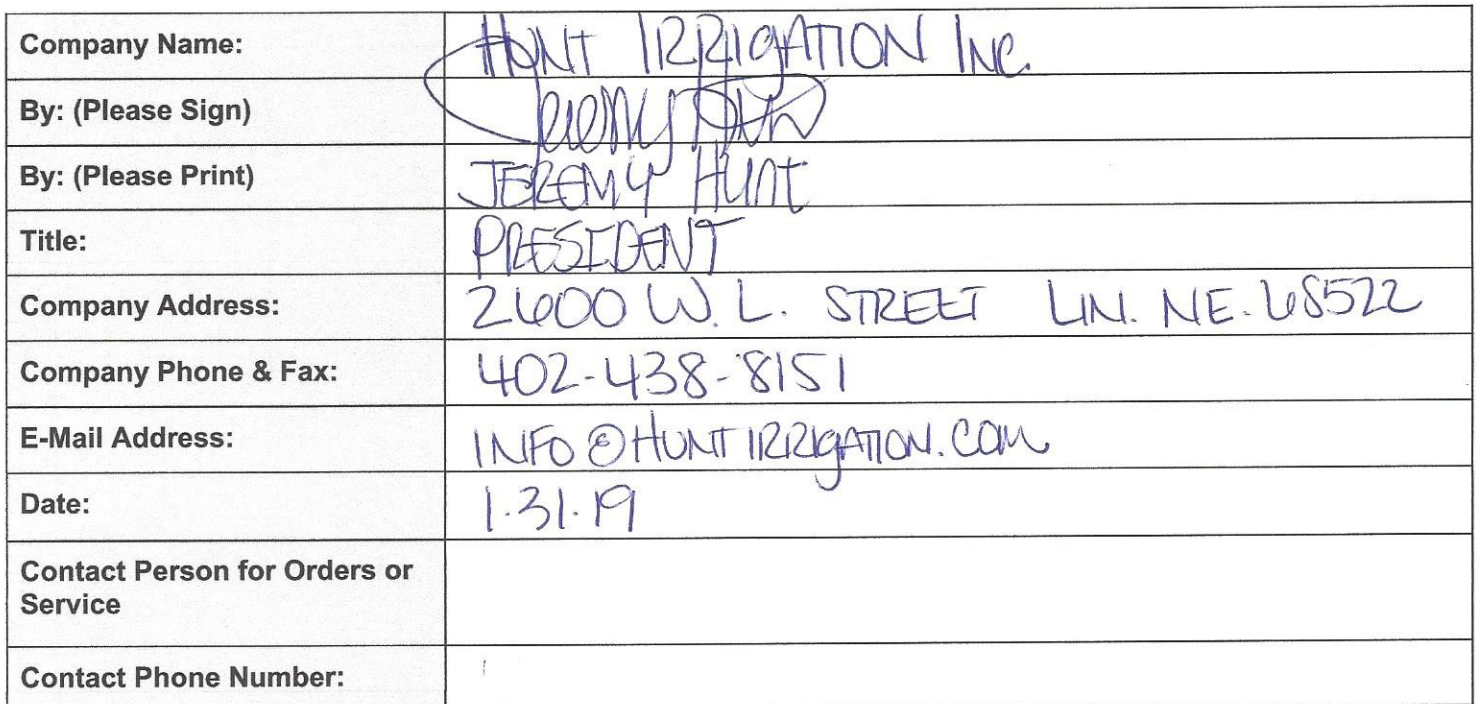 Company Name: HUNT IRRIGATION INC.
By: (Please Sign) Jeremy Hunt
By: (Please Print) JEREMY HUNT
Title: PRESIDENT
Company Address: 2600 W. L. STREET LIN. NE. 68522
Company Phone & Fax: 402-438-8151
E-Mail Address: INFO@HUNTIRRIGATION.COM
Date: 1.31.19
Contact Person for Orders or
Service
Contact Phone Number: